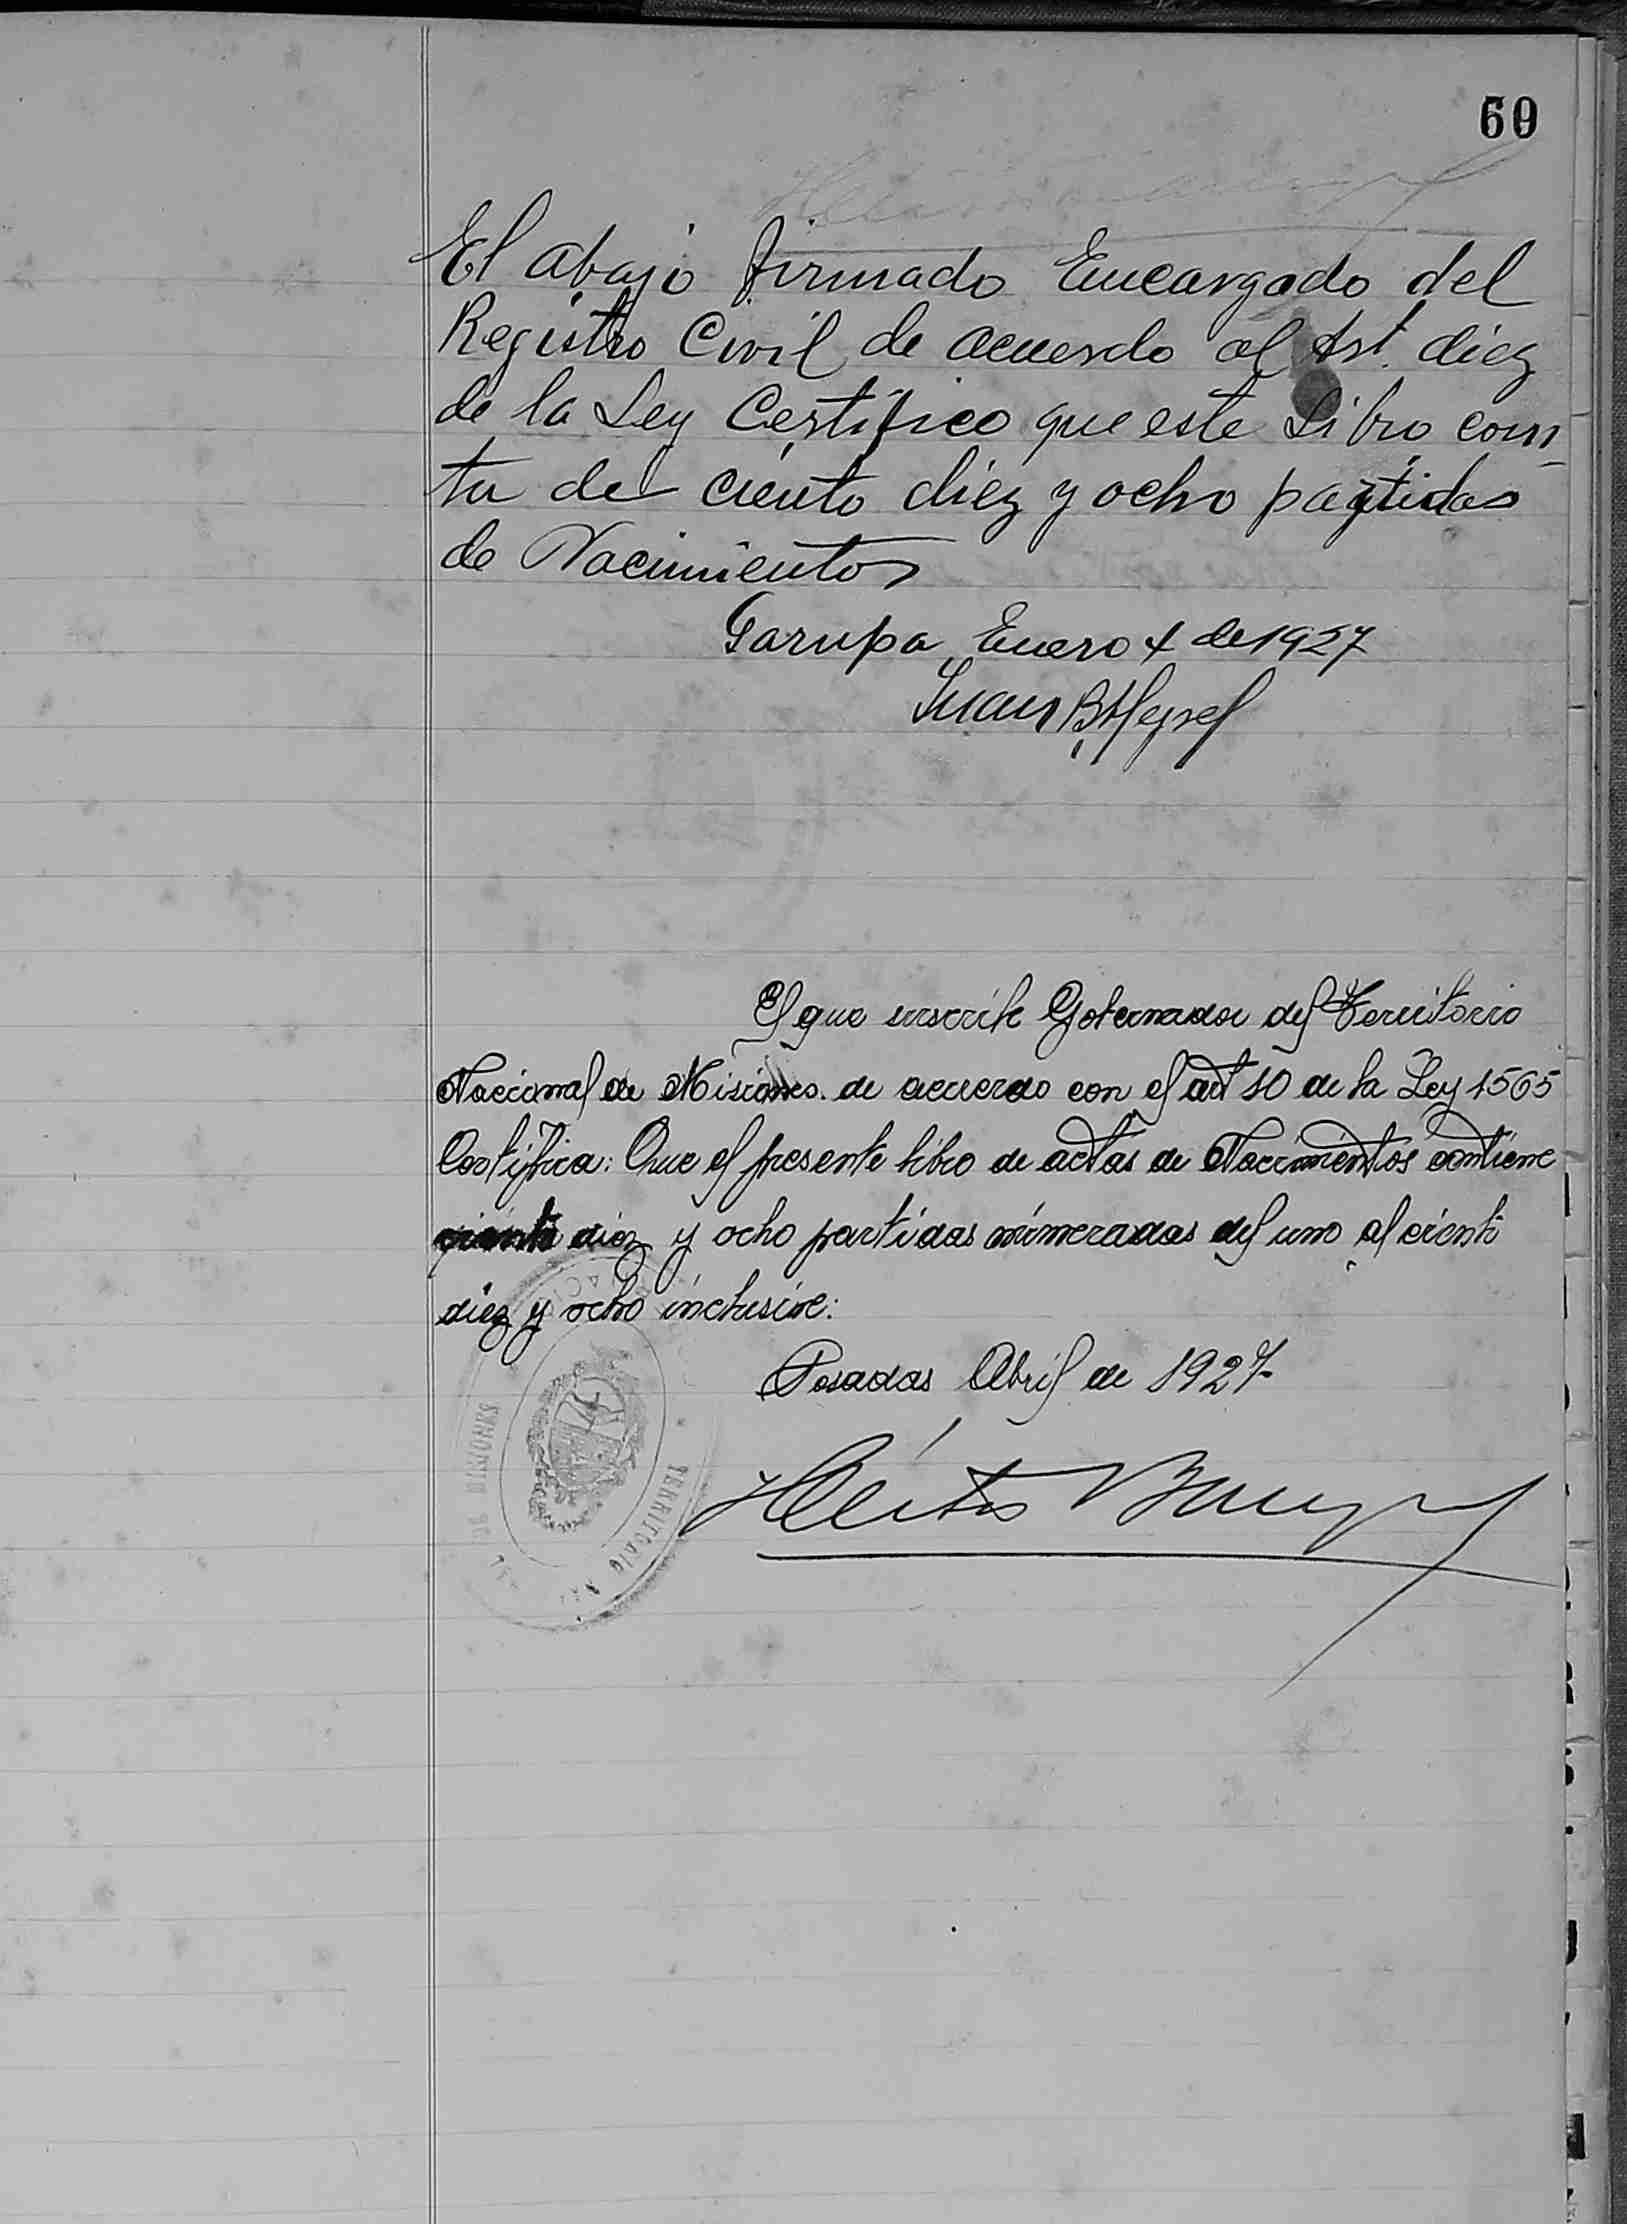 60
El abajo firmado Encargado del
Registro Civil de acuerdo al Art. diez
de la Ley Certifico que este Libro con-
ta de ciento diez y ocho partidas
de Nacimientos
Garupa Enero 4 de 1927
Juan B
El que suscribe Gobernador del Territorio
Nacional de Misiones. de acuerdo con el art 10 de la Ley 1565
Certifica: Que el presente libro de actas de Nacimientos contiene
ciento diez y ocho partidas númeradas del uno al ciento
diez y ocho inclusive:
Posadas Abril de 1927
Héctor
TERRITORIO
DE MISIONES